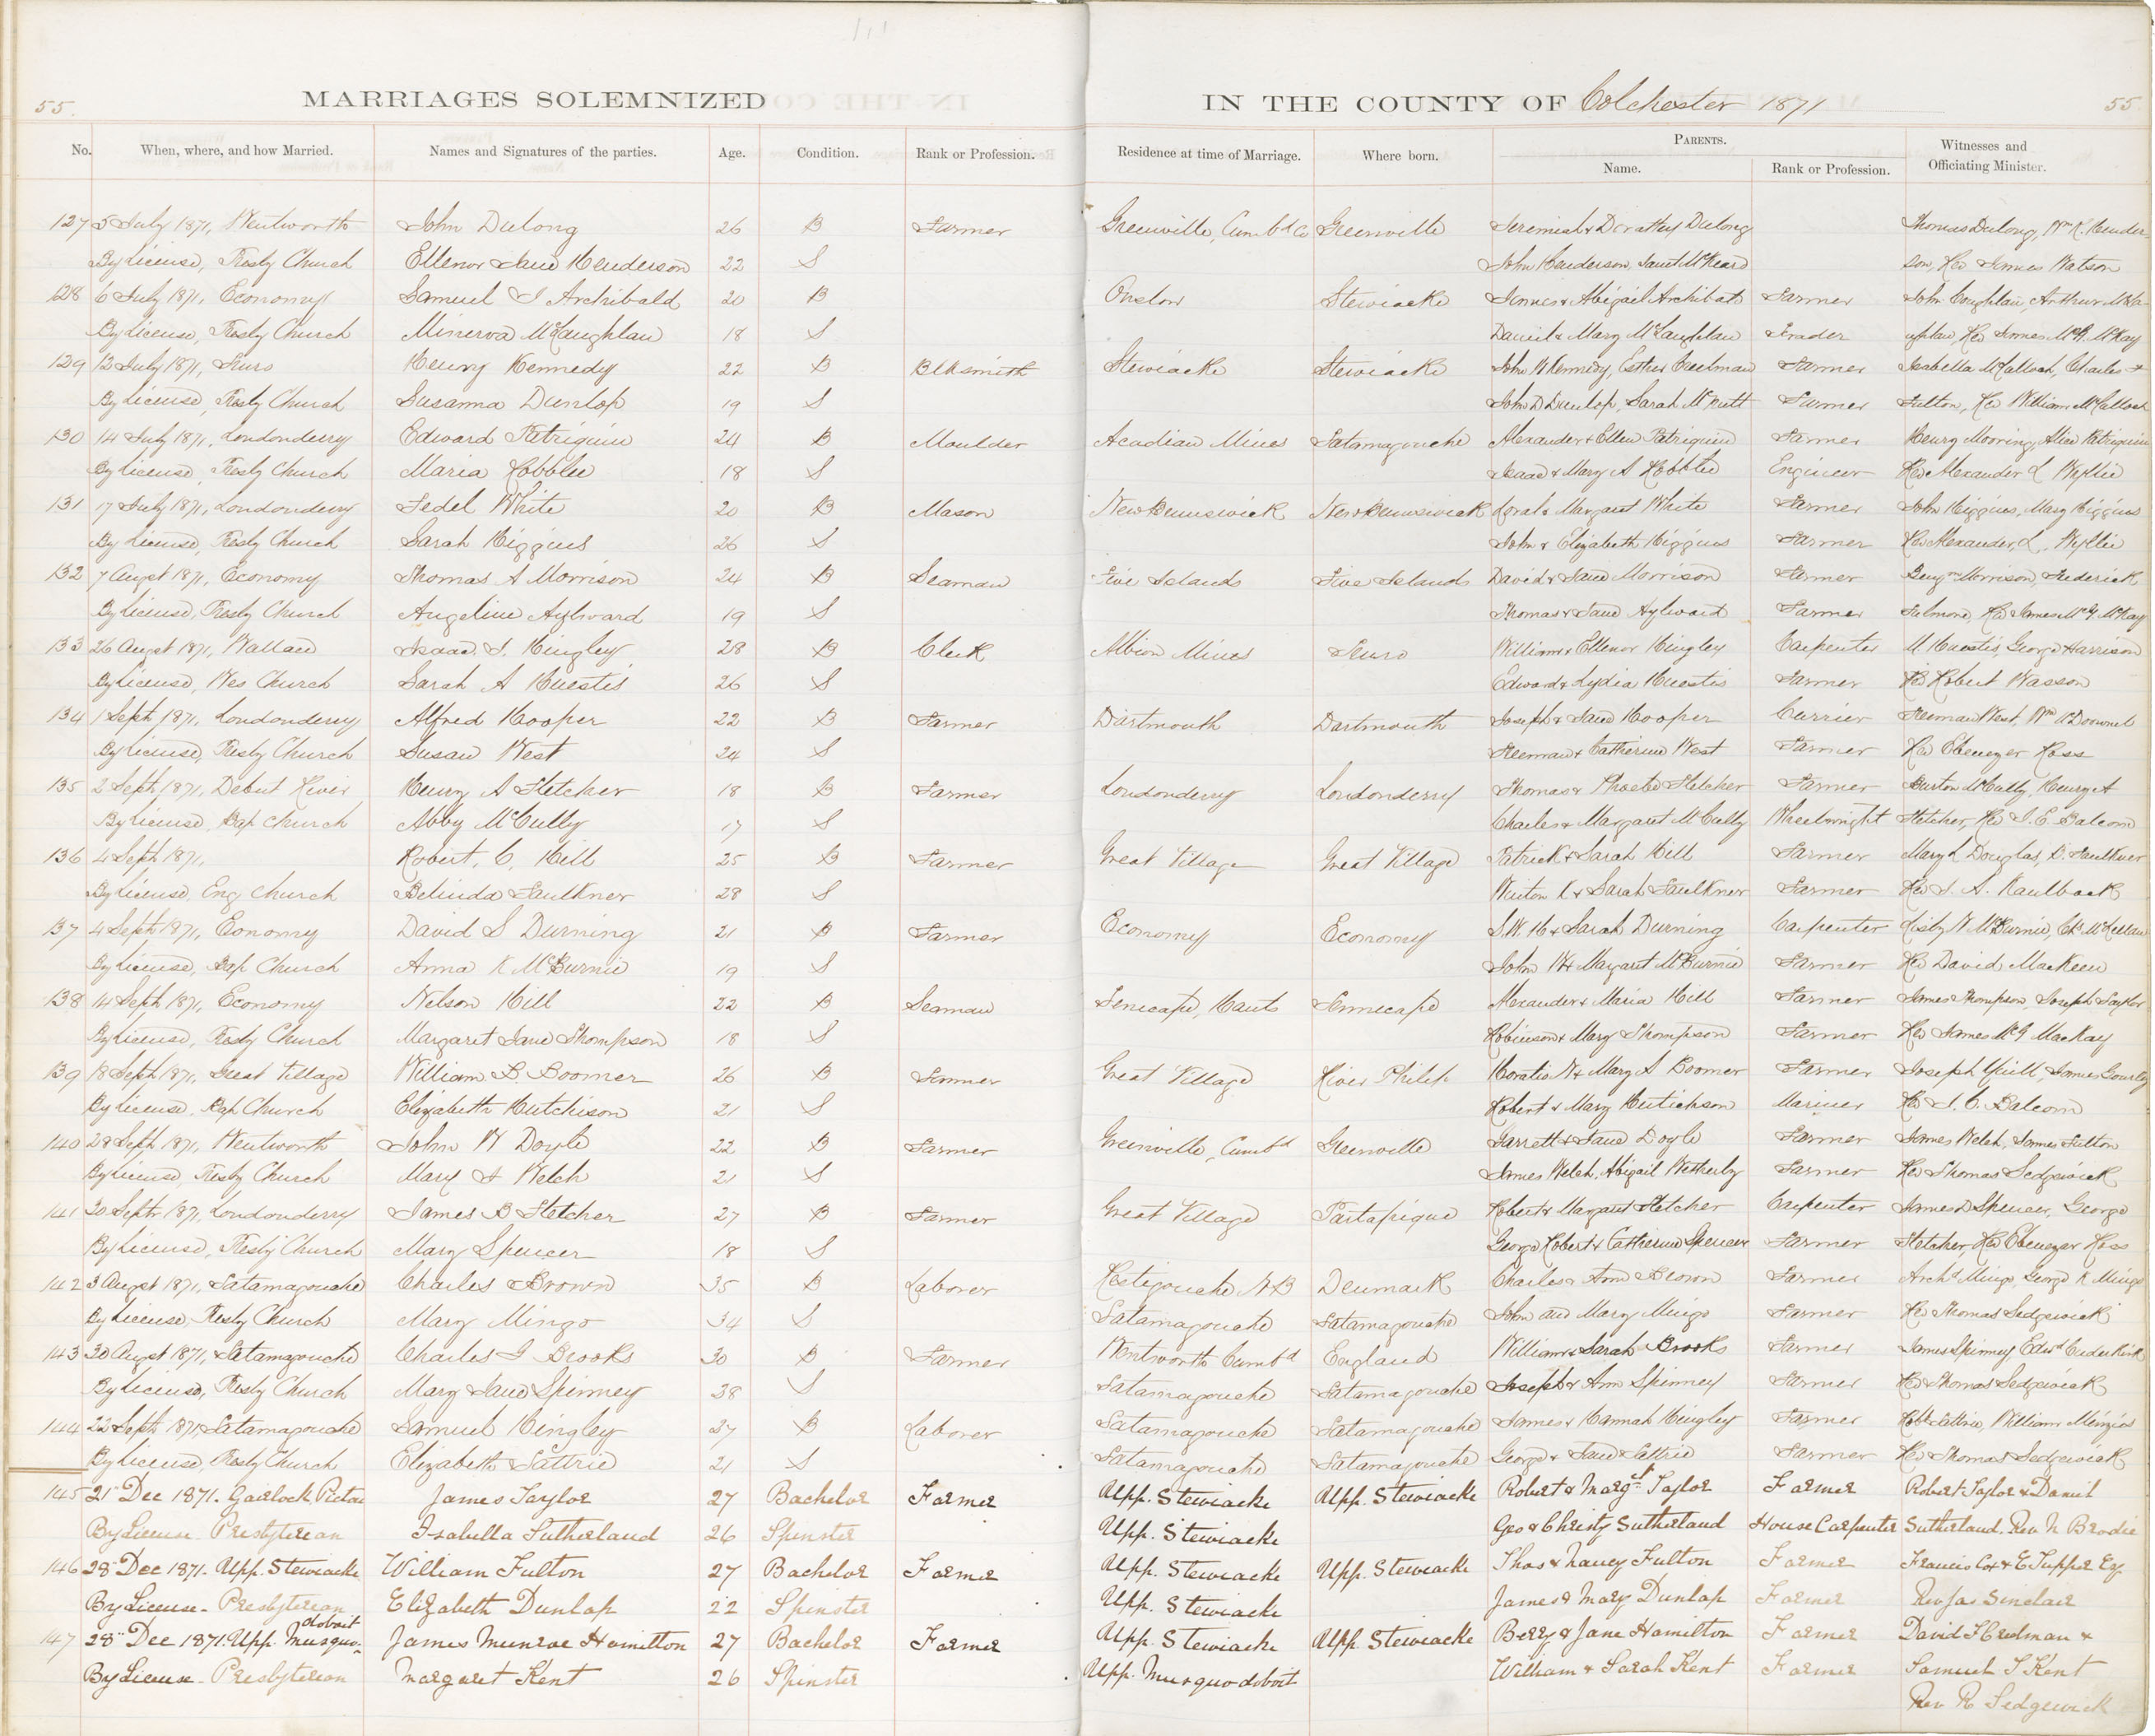 55. MARRIAGES SOLEMNIZED IN THE COUNTY OF Colchester 1871 55
No. When, where, and how Married. Names and Signatures of the parties. Age. Condition. Rank or Profession. Residence at time of Marriage. Where born. PARENTS. Name. Rank or Profession. Witnesses and Officiating Minister.
127 5 July 1871, Wentworth John Dulong 26 B Farmer Greenville, Cumbd Co Greenville Jeremiah & Dorathey Dulong Thomas Dulong, Wm R. Hender
By License, Presby Church Ellenor Jane Henderson 22 S John Henderson, Janet son, Rev James Watson
128 6 July 1871, Economy Samuel J Archibald 20 B Onslow Stewiacke James & Abigail Archibald Farmer John Coughlan, Arthur McLa
By License, Presby Church Minerva McLaughlan 18 S Daniel & Mary McLaughlan Trader ughlan, Rev James McG. McKay
129 12 July 1871, Truro Henry Kennedy 22 B Blksmith Stewiacke Stewiacke John W Kennedy, Esther Creelman Farmer Isabella McCulloch, Charles
By License, Presby Church Susanna Dunlop 19 S John D Dunlop, Sarah McNutt Farmer Fulton, Rev William McCulloch
130 14 July 1871, Londonderry Edward Patriquin 24 B Moulder Acadian Mines Tatamagouche Alexander & Ellen Patriquin Farmer Henry Mooring, Alice Patriquin
By License, Presby Church Maria Hobblee 18 S Isaac & Mary A Hobblee Engineer Rev Alexander L Wyllie
131 17 July 1871, Londonderry Fedel White 20 B Mason New Brunswick New Brunswick Loral & Margaret White Farmer John Higgins, Mary Higgins
By License, Presby Church Sarah Higgins 26 S John & Elizabeth Higgins Farmer Rev Alexander L. Wyllie
132 7 Augst 1871, Economy Thomas A Morrison 24 B Seaman Five Islands Five Islands David & Jane Morrison Farmer Benjn Morrison, Frederick
By License, Presby Church Angeline Aylward 19 S Thomas & Jane Aylward Farmer Fulmore, Rev James McG. McKay
133 26 Augst 1871, Wallace Isaac J. Hingley 28 B Clerk Albion Mines Truro William & Ellenor Hingley Carpenter M Huestis, George Harrison
By License, Wes Church Sarah A Huestis 26 S Edward & Lydia Huestis Farmer Rev Robert Wasson
134 1 Septr 1871, Londonderry Alfred Hooper 22 B Farmer Dartmouth Dartmouth Joseph & Jane Hooper Currier Freeman West, Wm
By License, Presby Church Susan West 24 S Freeman & Catherine West Farmer Rev Ebenezer Ross
135 2 Septr 1871, Debut River Henry A Fletcher 18 B Farmer Londonderry Londonderry Thomas & Phoebe Fletcher Farmer Burton McCully, Henry A
By License, Bap Church Abby McCully 17 S Charles & Margaret McCully Wheelwright Fletcher, Rev J. E. Balcom
136 4 Septr 1871, Robert, C. Hill 25 B Farmer Great Village Great Village Patrick & Sarah Hill Farmer Mary L Douglas, D. Faulkner
By License, Eng Church Belinda Faulkner 28 S K & Sarah Faulkner Farmer Rev J. A. Kaulback
137 4 Septr 1871, Economy David S Durning 21 B Farmer Economy Economy S. W. H & Sarah Durning Carpenter W McBurnie, Chs McLellan
By License, Bap Church Anna R McBurnie 19 S John W & Margaret McBurnie Farmer Rev David MacKeen
138 14 Septr 1871, Economy Nelson Hill 22 B Seaman Tenecape, Hants Tennecape Alexander & Maria Hill Farmer James Thompson, Joseph Taylor
By License, Presby Church Margaret Jane Thompson 18 S Robinson & Mary Thompson Farmer Rev James McG MacKay
139 18 Septr 1871, Great Village William B Boomer 26 B Farmer Great Village River Philip Horatio N & Mary S Boomer Farmer Joseph Spill, James Gourley
By License, Bap Church Elizabeth Hutchison 21 S Robert & Mary Hutichson Mariner Rev J. E. Balcom
140 28 Septr 1871, Wentworth John W Doyle 22 B Farmer Greenville, Cumbd Greenville Garrett & Jane Doyle Farmer James Welch, James Fulton
By License Presby Church Mary A Welch 21 S James Welch, Abigail Wetherby Farmer Rev Thomas Sedgewick
141 30 Septr 1871, Londonderry James B Fletcher 27 B Farmer Great Village Partapique Robert & Margaret Fletcher Carpenter James D Spencer, George
By License, Presby Church Mary Spencer 18 S George Robert & Catherine Spencer Farmer Fletcher, Rev Ebenezer Ross
142 3 Augst 1871, Tatamagouche Charles Brown 35 B Laborer Restigouche N.B Denmark Charles & Ann Brown Farmer Archd Mingo, George R Mingo
By License, Presby Church Mary Mingo 34 S Tatamagouche Tatamagouche John and Mary Mingo Farmer Rev Thomas Sedgewick
143 30 Augst 1871, Tatamagouche Charles J Brooks 30 B Farmer Wentworth Cumbd England William & Sarah Brooks Farmer James Spinney, Edwd
By License, Presby Church Mary Jane Spinney 38 S Tatamagouche Tatamagouche Joseph & Ann Spinney Farmer Rev Thomas Sedgewick
144 22 Septr 1871 Tatamagouche Samuel Hingley 27 B Laborer Tatamagouche Tatamagouche James & Hannah Hingley Farmer Robt Lattrie, William Menzies
By License, Presby Church Elizabeth Lattrie 21 S Tatamagouche Tatamagouche George & Jane Lattrie Farmer Rev Thomas Sedgewick
145 21" Dec 1871. Garlock, Pictou James Taylor 27 Bachelor Farmer Upp. Stewiacke Upp. Stewiacke Robert & Margt Taylor Farmer Robert Taylor & Daniel
By License. Presbyterian Isabella Sutherland 26 Spinster Upp. Stewiacke Geo & Christy Sutherland House Carpenter Sutherland. Rev N Brodie
146 28" Dec 1871. Upp. Stewiacke William Fulton 27 Bachelor Farmer Upp. Stewiacke Upp. Stewiacke Thos & Nancy Fulton Farmer Francis Cox & E Tupper Esq.
By License. Presbyterian Elizabeth Dunlap 22 Spinster Upp. Stewiacke James & Mary Dunlap Farmer Rev Jas Sinclair
147 28" Dec 1871. Upp. Musquodoboit James Munroe Hamilton 27 Bachelor Farmer Upp. Stewiacke Upp. Stewiacke Berry & Jane Hamilton Farmer David H Creelman &
By License. Presbyterian Margaret Kent 26 Spinster Upp. Musquodoboit William & Sarah Kent Farmer Samuel S Kent
Rev R Sedgewick